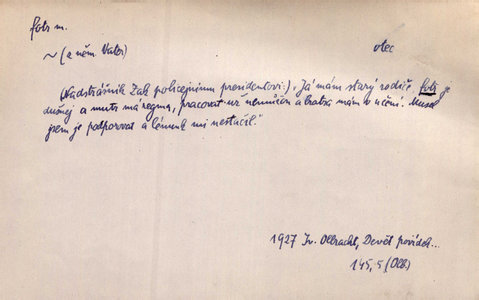 fotr m.
~ (z něm. Vater)
otec
(Nadstrážník Žák policejnímu presidentovi:) „Já mám starý rodiče, fotr je
dušnej a mutr má regma, pracovat už nemůžou a bratra mám v učení. Musel
jsem je podporovat a lénunk mi nestačil.“
1927 Iv. Olbracht, Devět povídek...
145, 5 (Olb.)